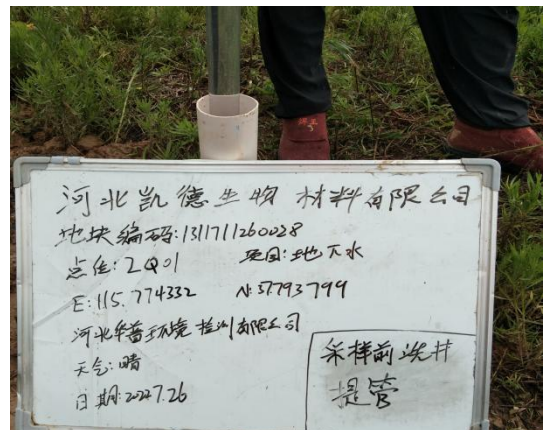 河北凯德生物材料有限公司
地块编码:1311711260028
点位:2Q01 项目:地下水
E:115.774332 N:37.793799
河北华普环境检测有限公司
天气:晴
日期:2022.7.26
采样前洗井
提管